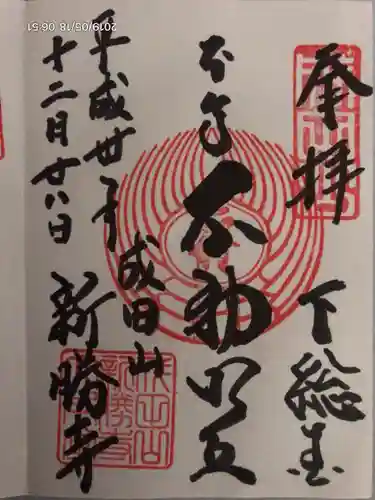 2019/05/18 06:51
奉拝
下総
本尊
不動明王
成田山
新勝寺
平成廿一年
十二月廿八日
成田山
新勝寺